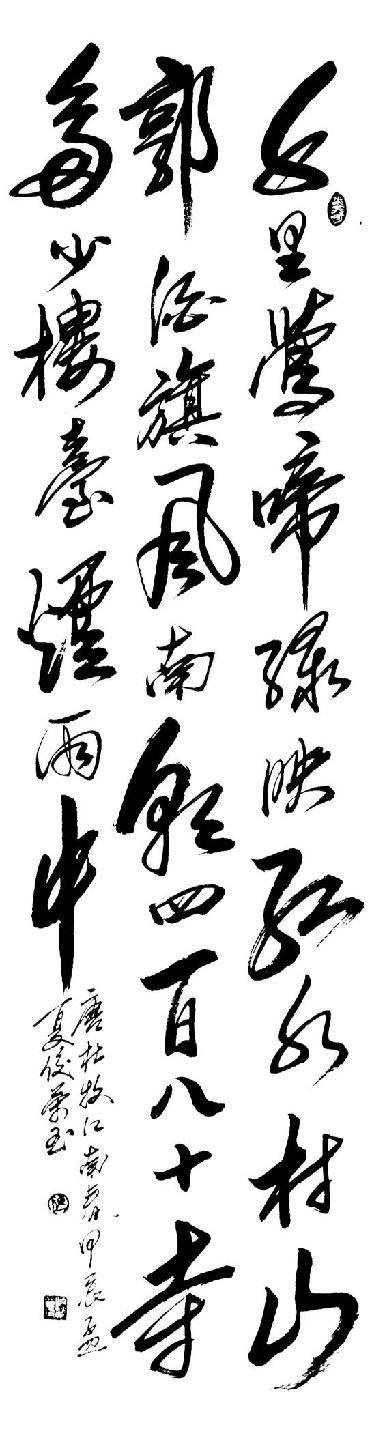 千里莺啼绿映红水村山
郭酒旗风南朝四百八十寺
多少樓臺煙雨中
唐杜牧江南春甲辰孟
夏俊荣书